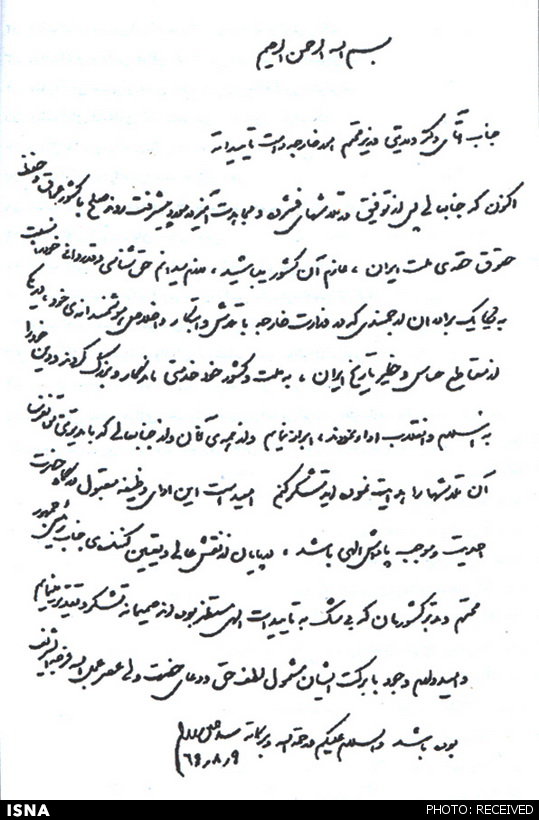 بسم الله الرحمن الرحیم
جناب آقای دکتر ولایتی وزیر محترم امور خارجه دامت تاییداته
اکنون که جنابعالی پس از توفیق در تلاشهای فشرده و مجاهدت آمیز در مورد پیشرفت روند صلح با کشور عراق و حفظ
حقوق حقه‌ی ملت ایران، عازم آن کشور میباشید، لازم میدانم حق شناسی و قدردانی خود را نسبت
به یکایک برادران ارجمندی که در وزارت خارجه با تلاش و ابتکار و اخلاص و هوشمندانه‌ی خود، در یکی
از مقاطع حساس و خطیر تاریخ ایران، به ملت و کشور خود خدمتی ماندگار و بزرگ کردند و دین خود را
به اسلام و انقلاب ادا نمودند، ابراز نمایم و از همه‌ی آنان و از جنابعالی که با مدیریتی
آن تلاشها را هدایت نموده اید تشکر کنم امید است این ادای وظیفه مقبول درگاه حضرت
احدیت و موجب پاداش الهی باشد، در پایان از نقش عالی و تعیین کننده‌ی جناب رئیس جمهور
محترم و مدبر کشورمان که بی شک به تاییدات الهی مستظهر بوده اند صمیمانه تشکر و تقدیر مینمایم
و امیدوارم وجود با برکت ایشان مشمول لطف حق و دعای حضرت ولی عصر عجل الله فرجه الشریف
بوده باشد والسلام علیکم و رحمة الله و برکاته سید علی خامنه‌ای
۶۹٫۸٫۹
ISNA
PHOTO: RECEIVED